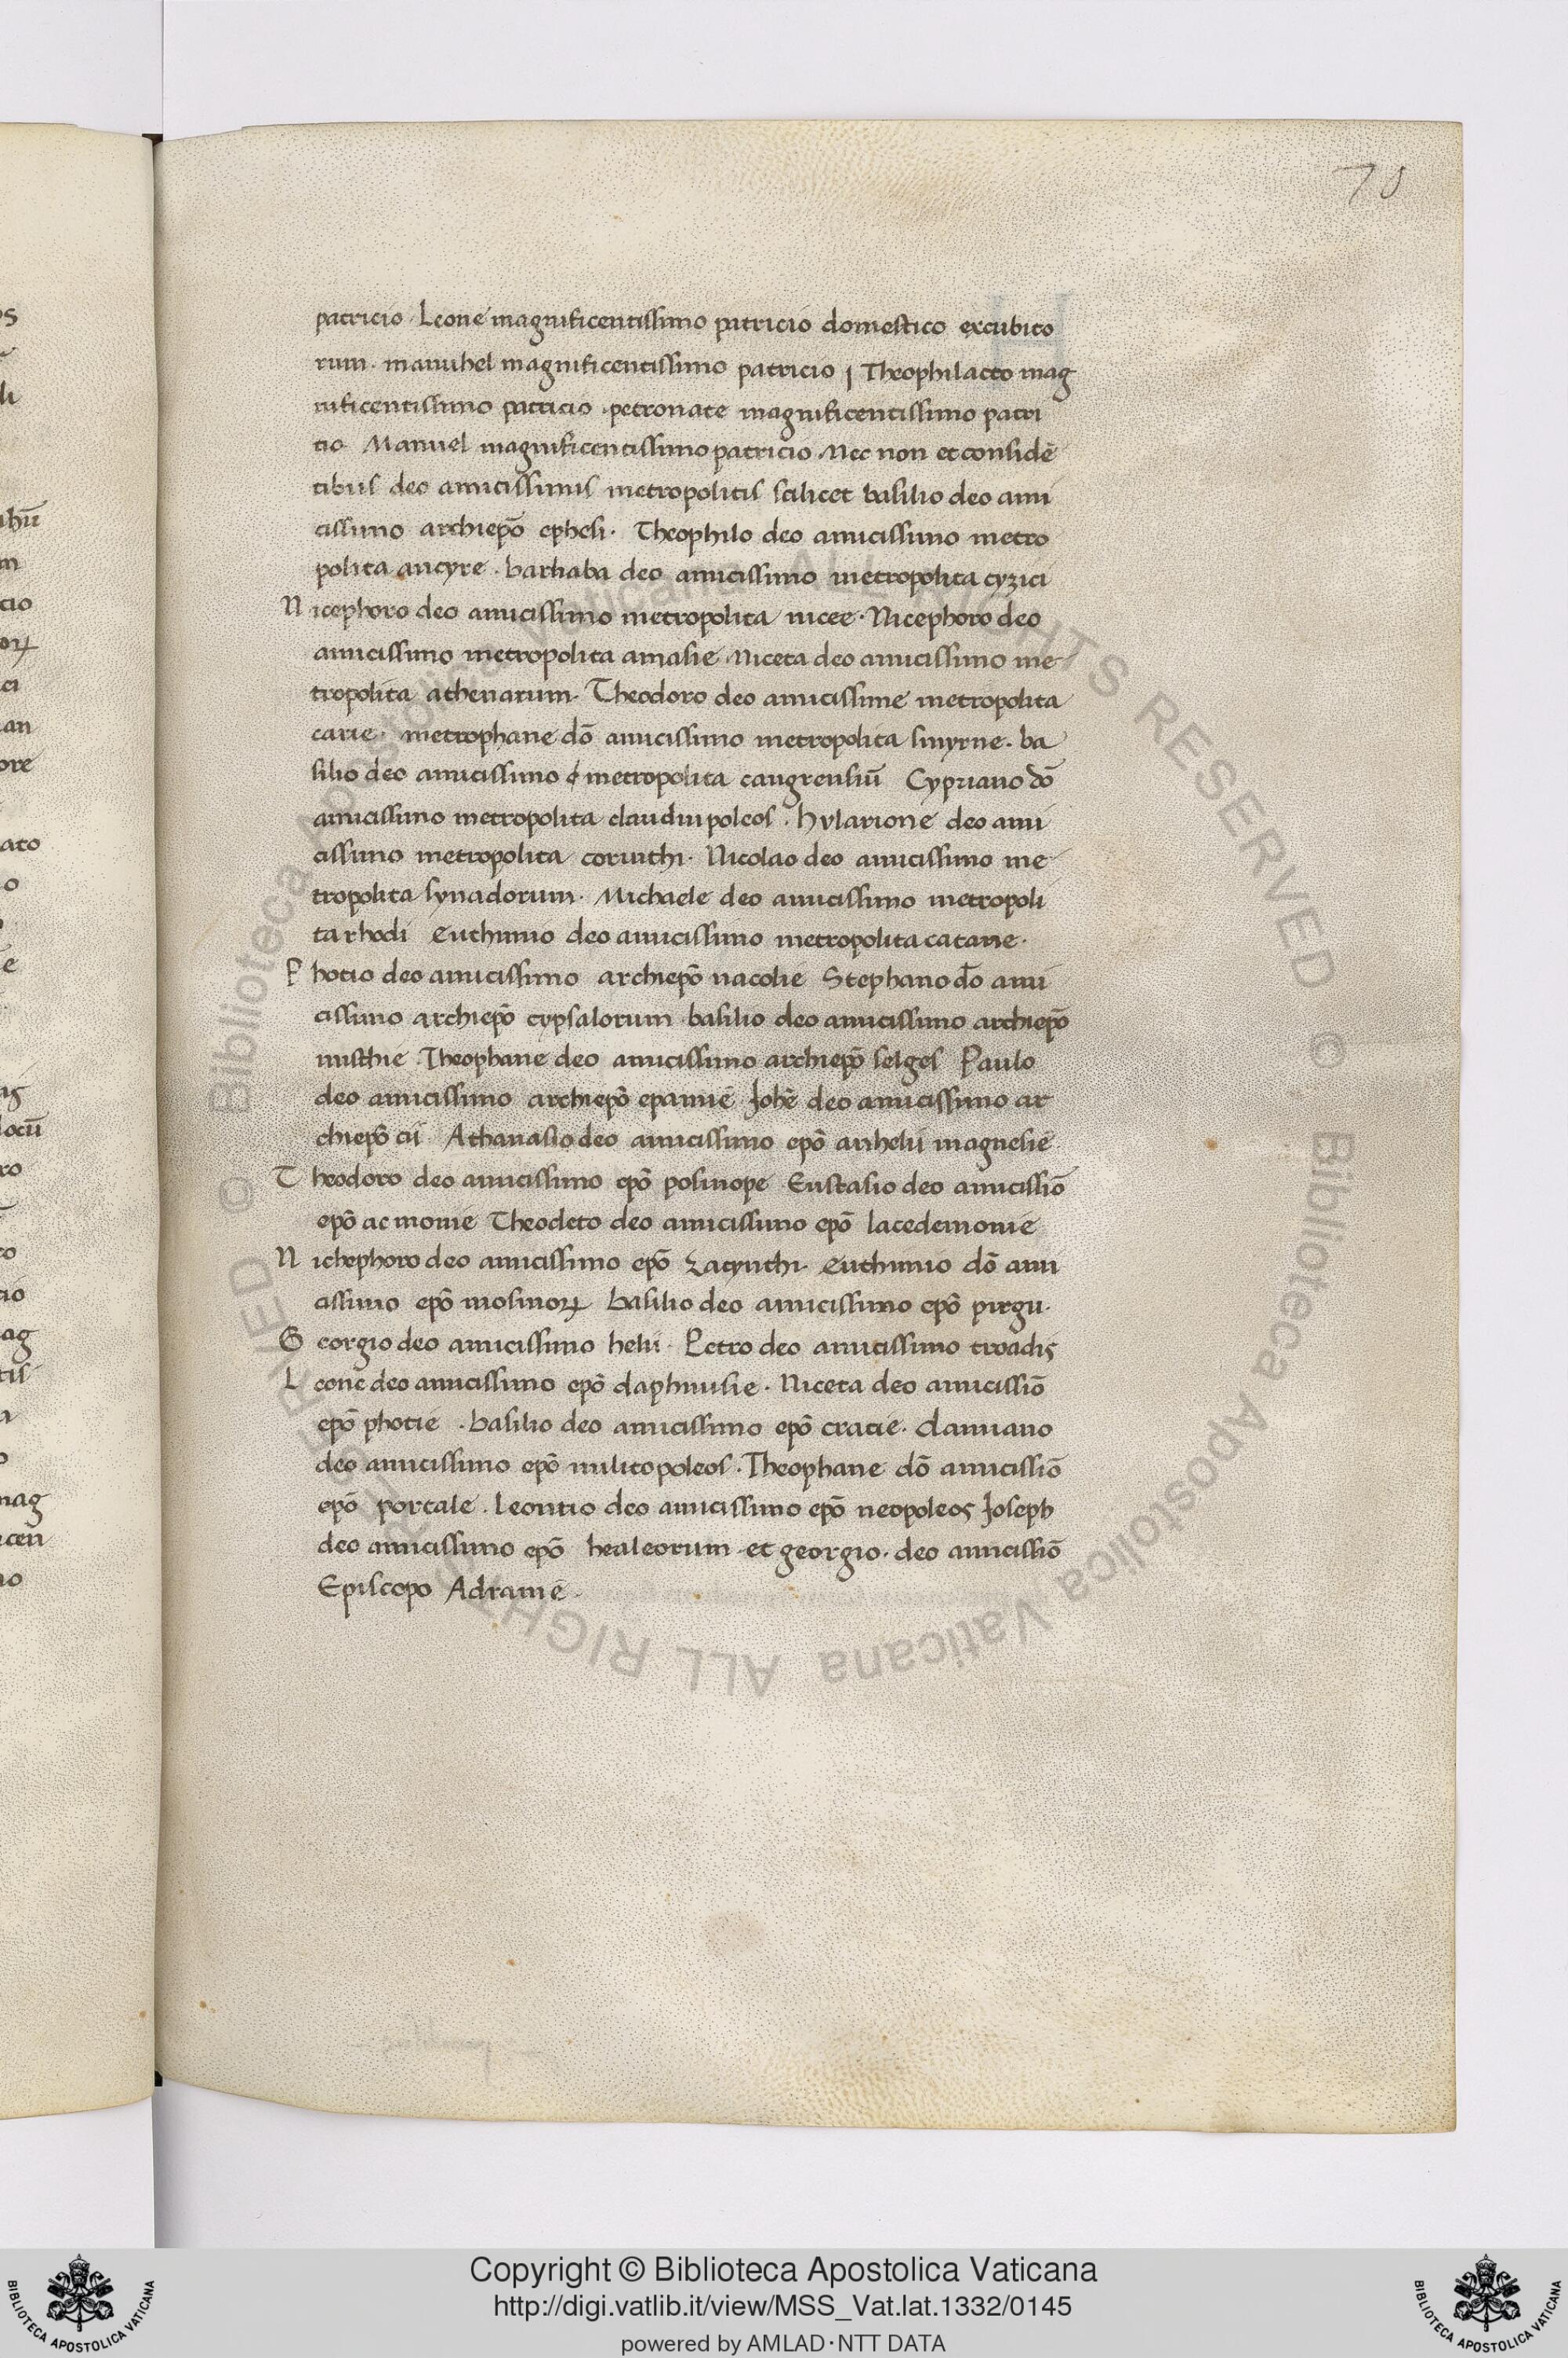 70
patricio · Leone magnificentissimo patricio domestico excubito
rum · manuhel magnificentissimo patricio | Theophilacto mag
nificentissimo patricio · petronate magnificentissimo patri
tio Manuel magnificentissimo patricio · Nec non et considē
tibus deo amicissimis metropolitis scilicet basilio deo ami
cissimo archiepō ephesi · Theophilo deo amicissimo metro
polita ancyre · barhaba deo amicissimo metropolita cyzici
Nicephoro deo amicissimo metropolita nicee · Nicephoro deo
amicissimo metropolita amasie · Niceta deo amicissimo me
tropolita athenarum · Theodoro deo amicissime metropolita
carie · metrophane dō amicissimo metropolita smyrne · ba
silio deo amicissimo metropolita cangrensiū Cypriano dō
amicissimo metropolita claudiupoleos · hylarione deo ami
cissimo metropolita corinthi · Nicolao deo amicissimo me
tropolita synadorum · Michaele deo amicissimo metropoli
ta rhodi euthimio deo amicissimo metropolita catanie ·
Photio deo amicissimo archiepō nacolie Stephano dō ami
cissimo archiepō cypsalorum · basilio deo amicissimo archiepō
misthie · Theophane deo amicissimo archiepō selges Paulo
deo amicissimo archiepō epamie Johē deo amicissimo ar
chiepō cii · Athanasio deo amicissimo epō anhelii magnesie
Theodoro deo amicissimo epō posinope Eustasio deo amicissiō
epō acmonie Theodeto deo amicissimo epō lacedemonie
Nichephoro deo amicissimo epō zacynthi · euthimio dō ami
cissimo epō mosinoꝝ basilio deo amicissimo epō pirgu ·
Georgio deo amicissimo helii · Petro deo amicissimo troadis
Leone deo amicissimo epō daphnusie · Niceta deo amicissiō
epō photie · basilio deo amicissimo epō cratie · damiano
deo amicissimo epō militopoleos · Theophane dō amicissiō
epō portale · Leontio deo amicissimo epō neopoleos Joseph
deo amicissimo epō healeorum · et georgio · deo amicissiō
Episcopo Adranie ·
Copyright © Biblioteca Apostolica Vaticana
http://digi.vatlib.it/view/MSS_Vat.lat.1332/0145
powered by AMLAD · NTT DATA